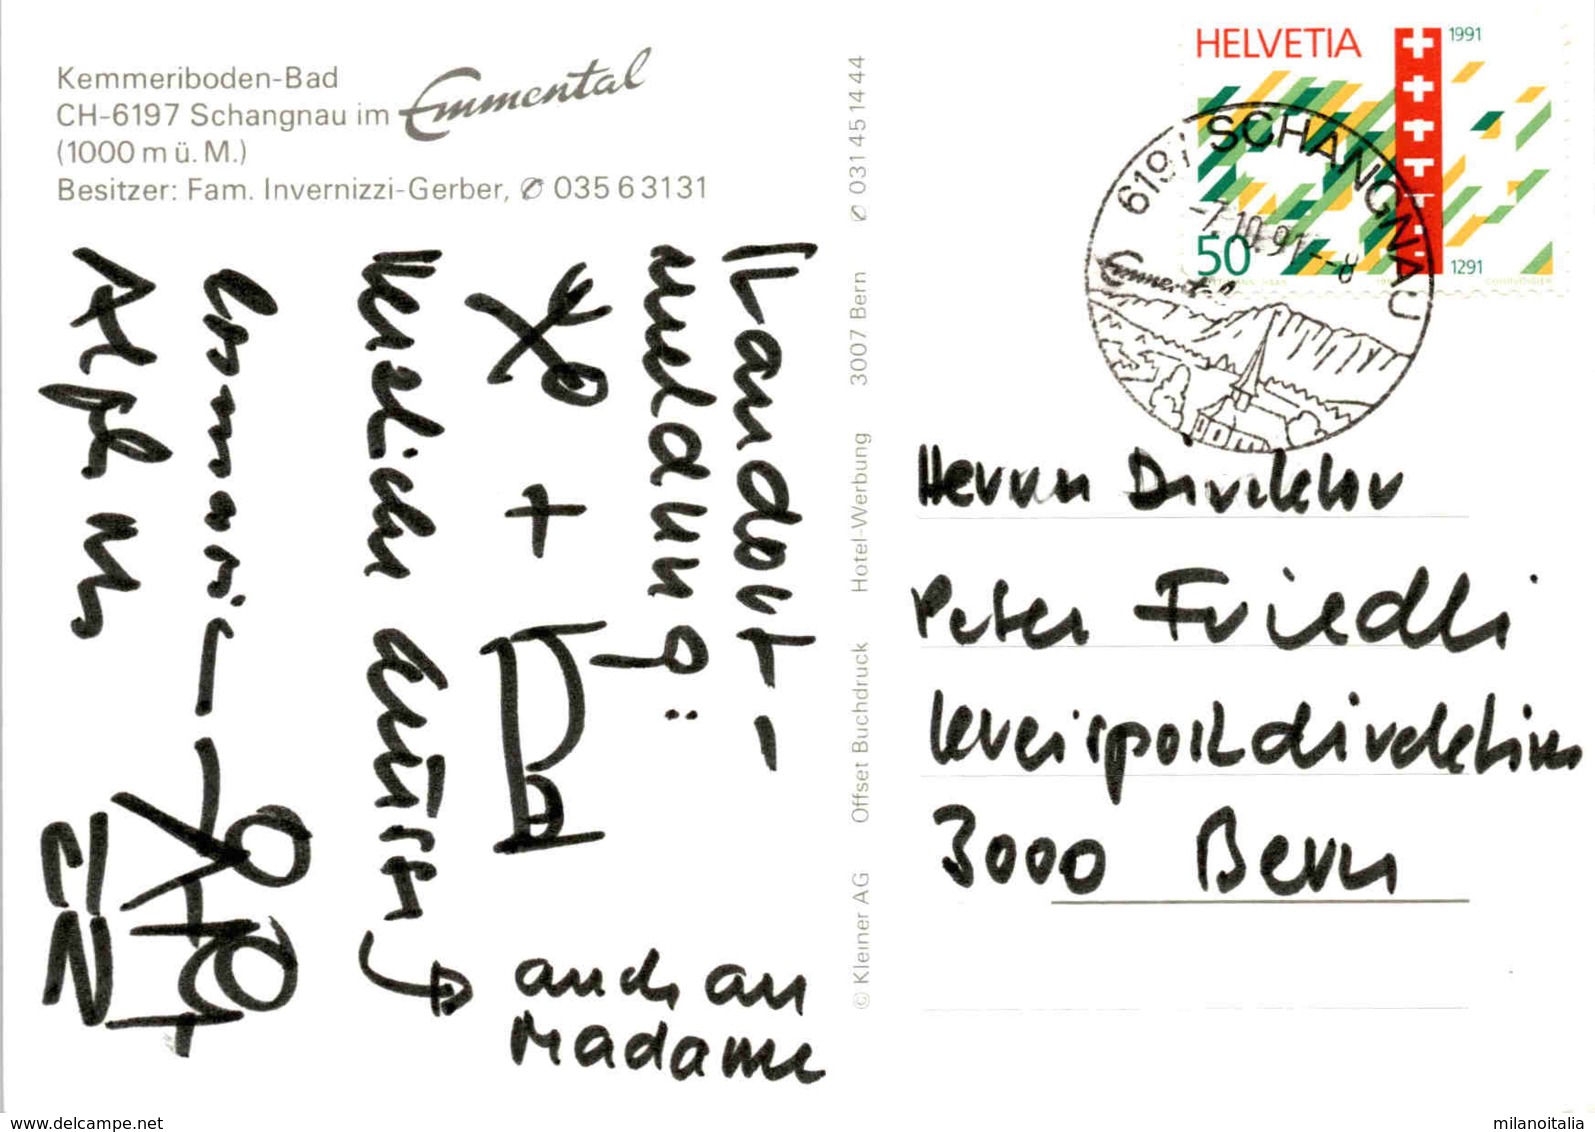 Kemmeriboden-Bad
CH-6197 Schangnau im Emmental
(1000 m ü. M.)
Besitzer: Fam. Invernizzi-Gerber, ✆ 035 6 31 31
Standort-
meldung:
+
Herzliche Grüsse
auch an
Madame
© Kleiner AG Offset Buchdruck Hotel-Werbung 3007 Bern ✆ 031 45 14 44
HELVETIA
1991
50
1291
6197 SCHANGNAU
-7.10.91--8
Emmental
Herrn Direktor
Peter Friedli
Kreispostdirektion
3000 Bern
www.delcampe.net
milanoitalia